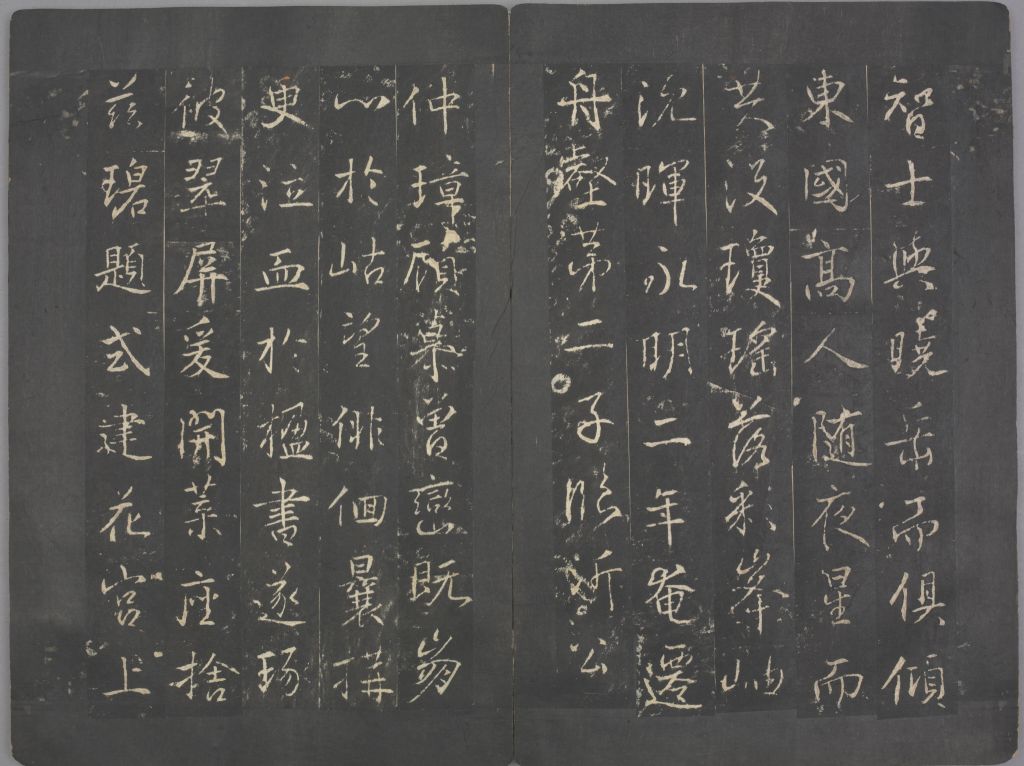 智士與曉岳而俱傾
東國高人隨夜星而
共沒瓊瑤落彩峯岫
沉暉永明二年奄遷
舟壑第二子臨沂公
仲璋顧慕曾巒既崩
心於岵望俳佪曩構
更泣血於楹書遂琢
彼翠屏爰開葉座捨
茲碧題式建花宮上